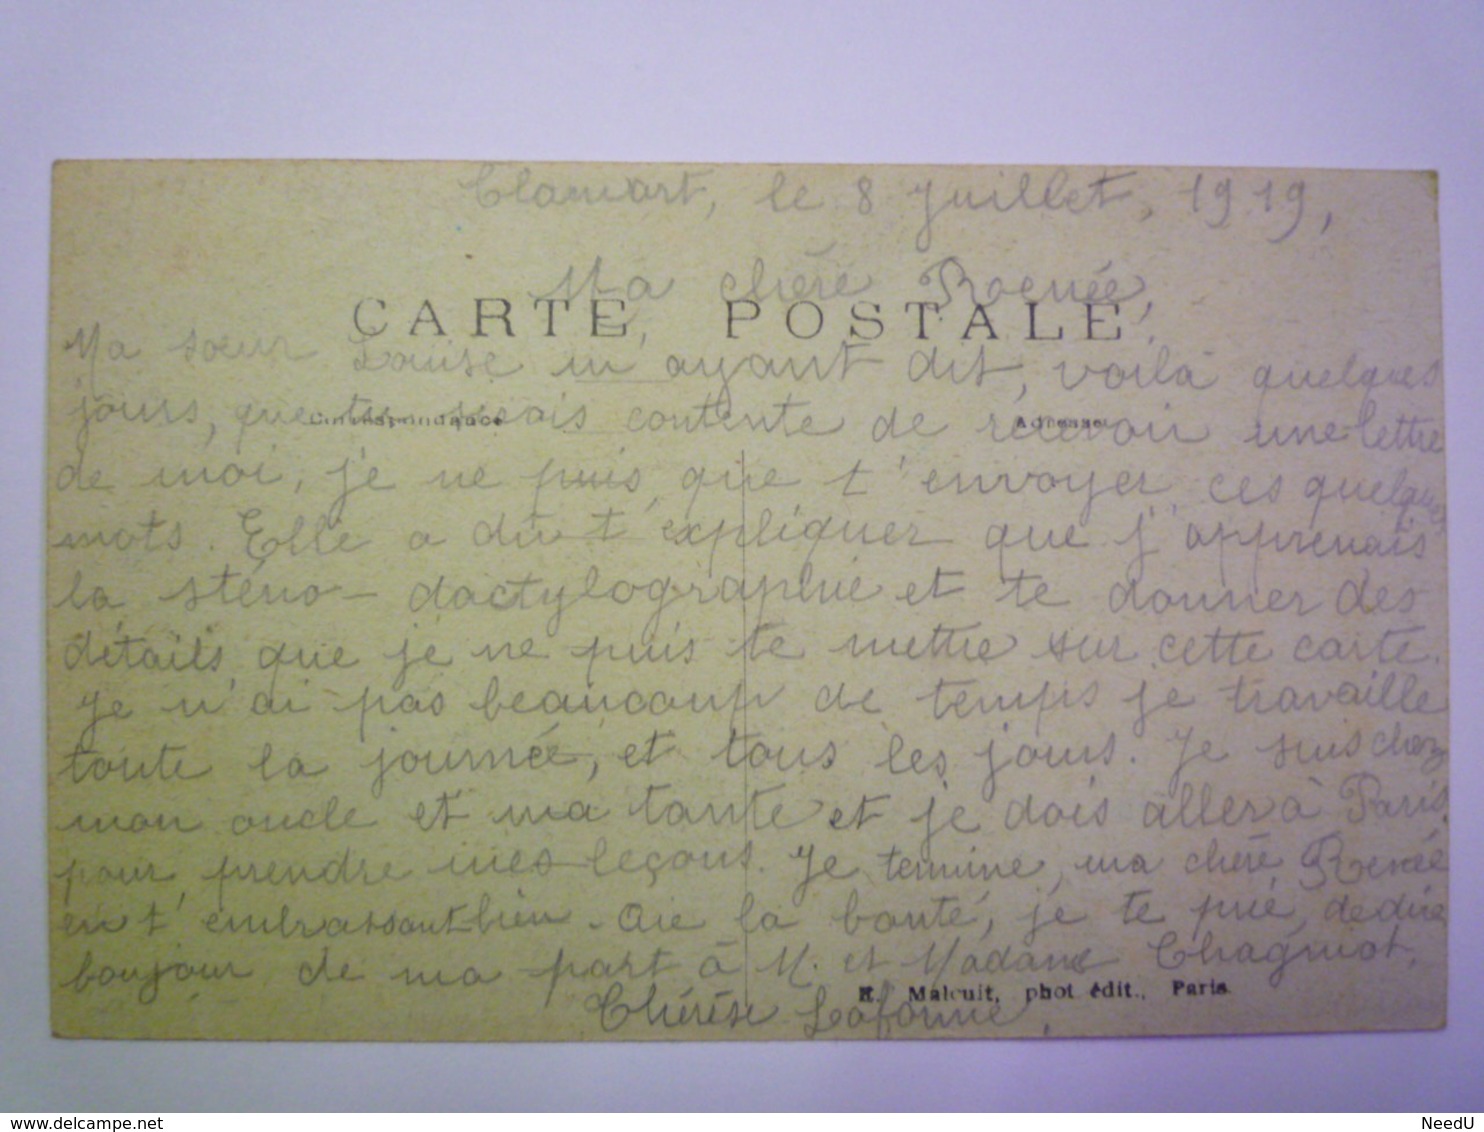 Clamart, le 8 Juillet, 1919,
Ma chère Renée,
CARTE POSTALE
Ma sœur Louise m'ayant dit, voilà quelques
jours, que tu serais contente de recevoir une lettre
Correspondance
Adresse
de moi, je ne puis que t'envoyer ces quelques
mots. Elle a dû t'expliquer que j'apprenais
la sténo-dactylographie et te donner des
détails que je ne puis te mettre sur cette carte.
Je n'ai pas beaucoup de temps je travaille
toute la journée, et tous les jours. Je suis chez
mon oncle et ma tante et je dois aller à Paris
pour prendre mes leçons. Je termine, ma chère Renée
en t'embrassant bien. Aie la bonté, je te prie, de dire
bonjour de ma part à M. et Madame Chagnot.
Malcuit, phot. édit., Paris
Thérèse
NeedU